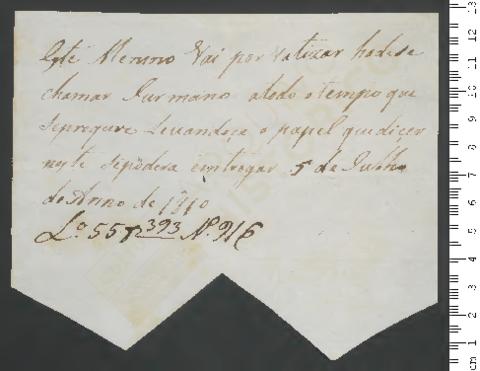 Este Menino Vai por vatizar hadese
chamar Jurmano atodo otempo que
sepregure Levandoce o papel que dicer
neste sepodera emtregar 5 de Julho
do Anno de 1810
Lo. 55 393 No. 916
cm 1 2 3 4 5 6 7 8 9 10 11 12 13